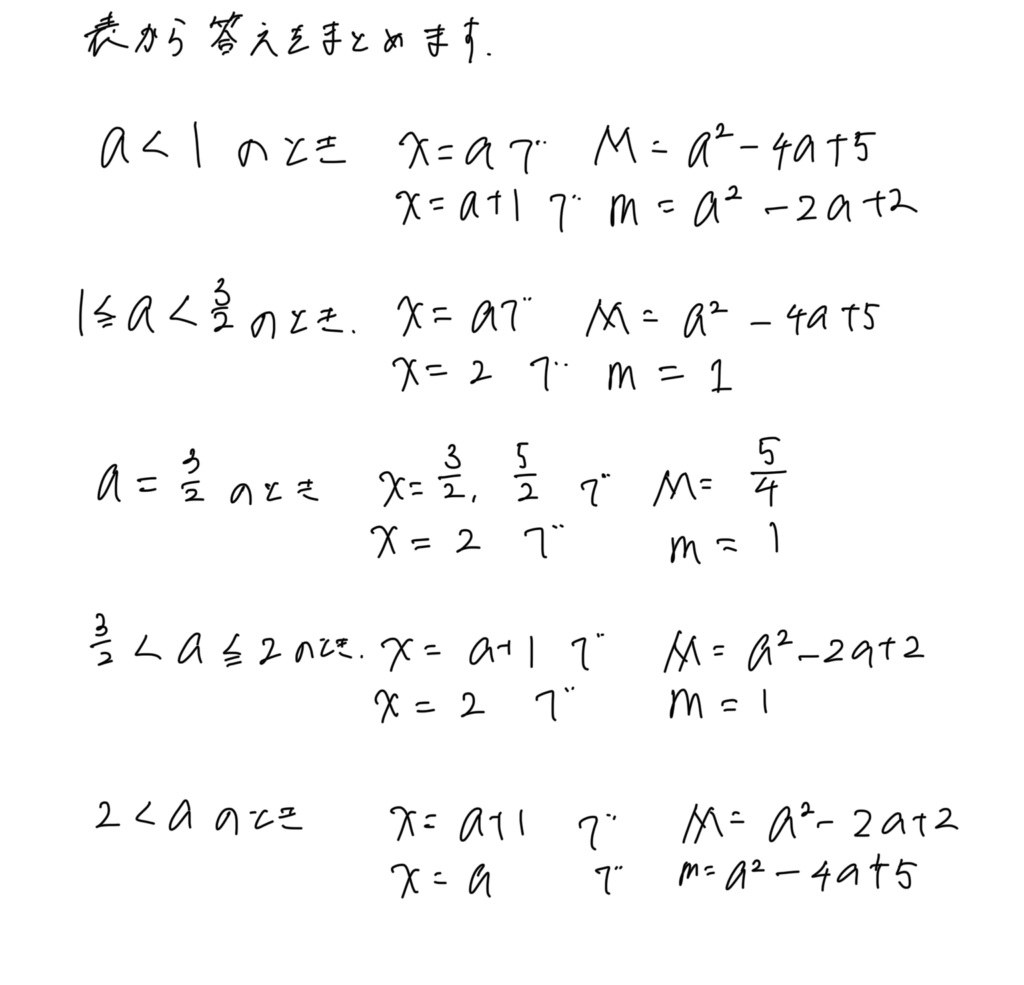 表から答えをまとめます.
a<1 のとき x=aで M=a²-4a+5
x=a+1 で m=a²-2a+2
1≦a<3/2 のとき. x=aで M=a²-4a+5
x=2 で m=1
a=3/2 のとき x=3/2, 5/2 で M=5/4
x=2 で m=1
3/2<a≦2 のとき. x=a+1 で M=a²-2a+2
x=2 で m=1
2<a のとき x=a+1 で M=a²-2a+2
x=a で m=a²-4a+5